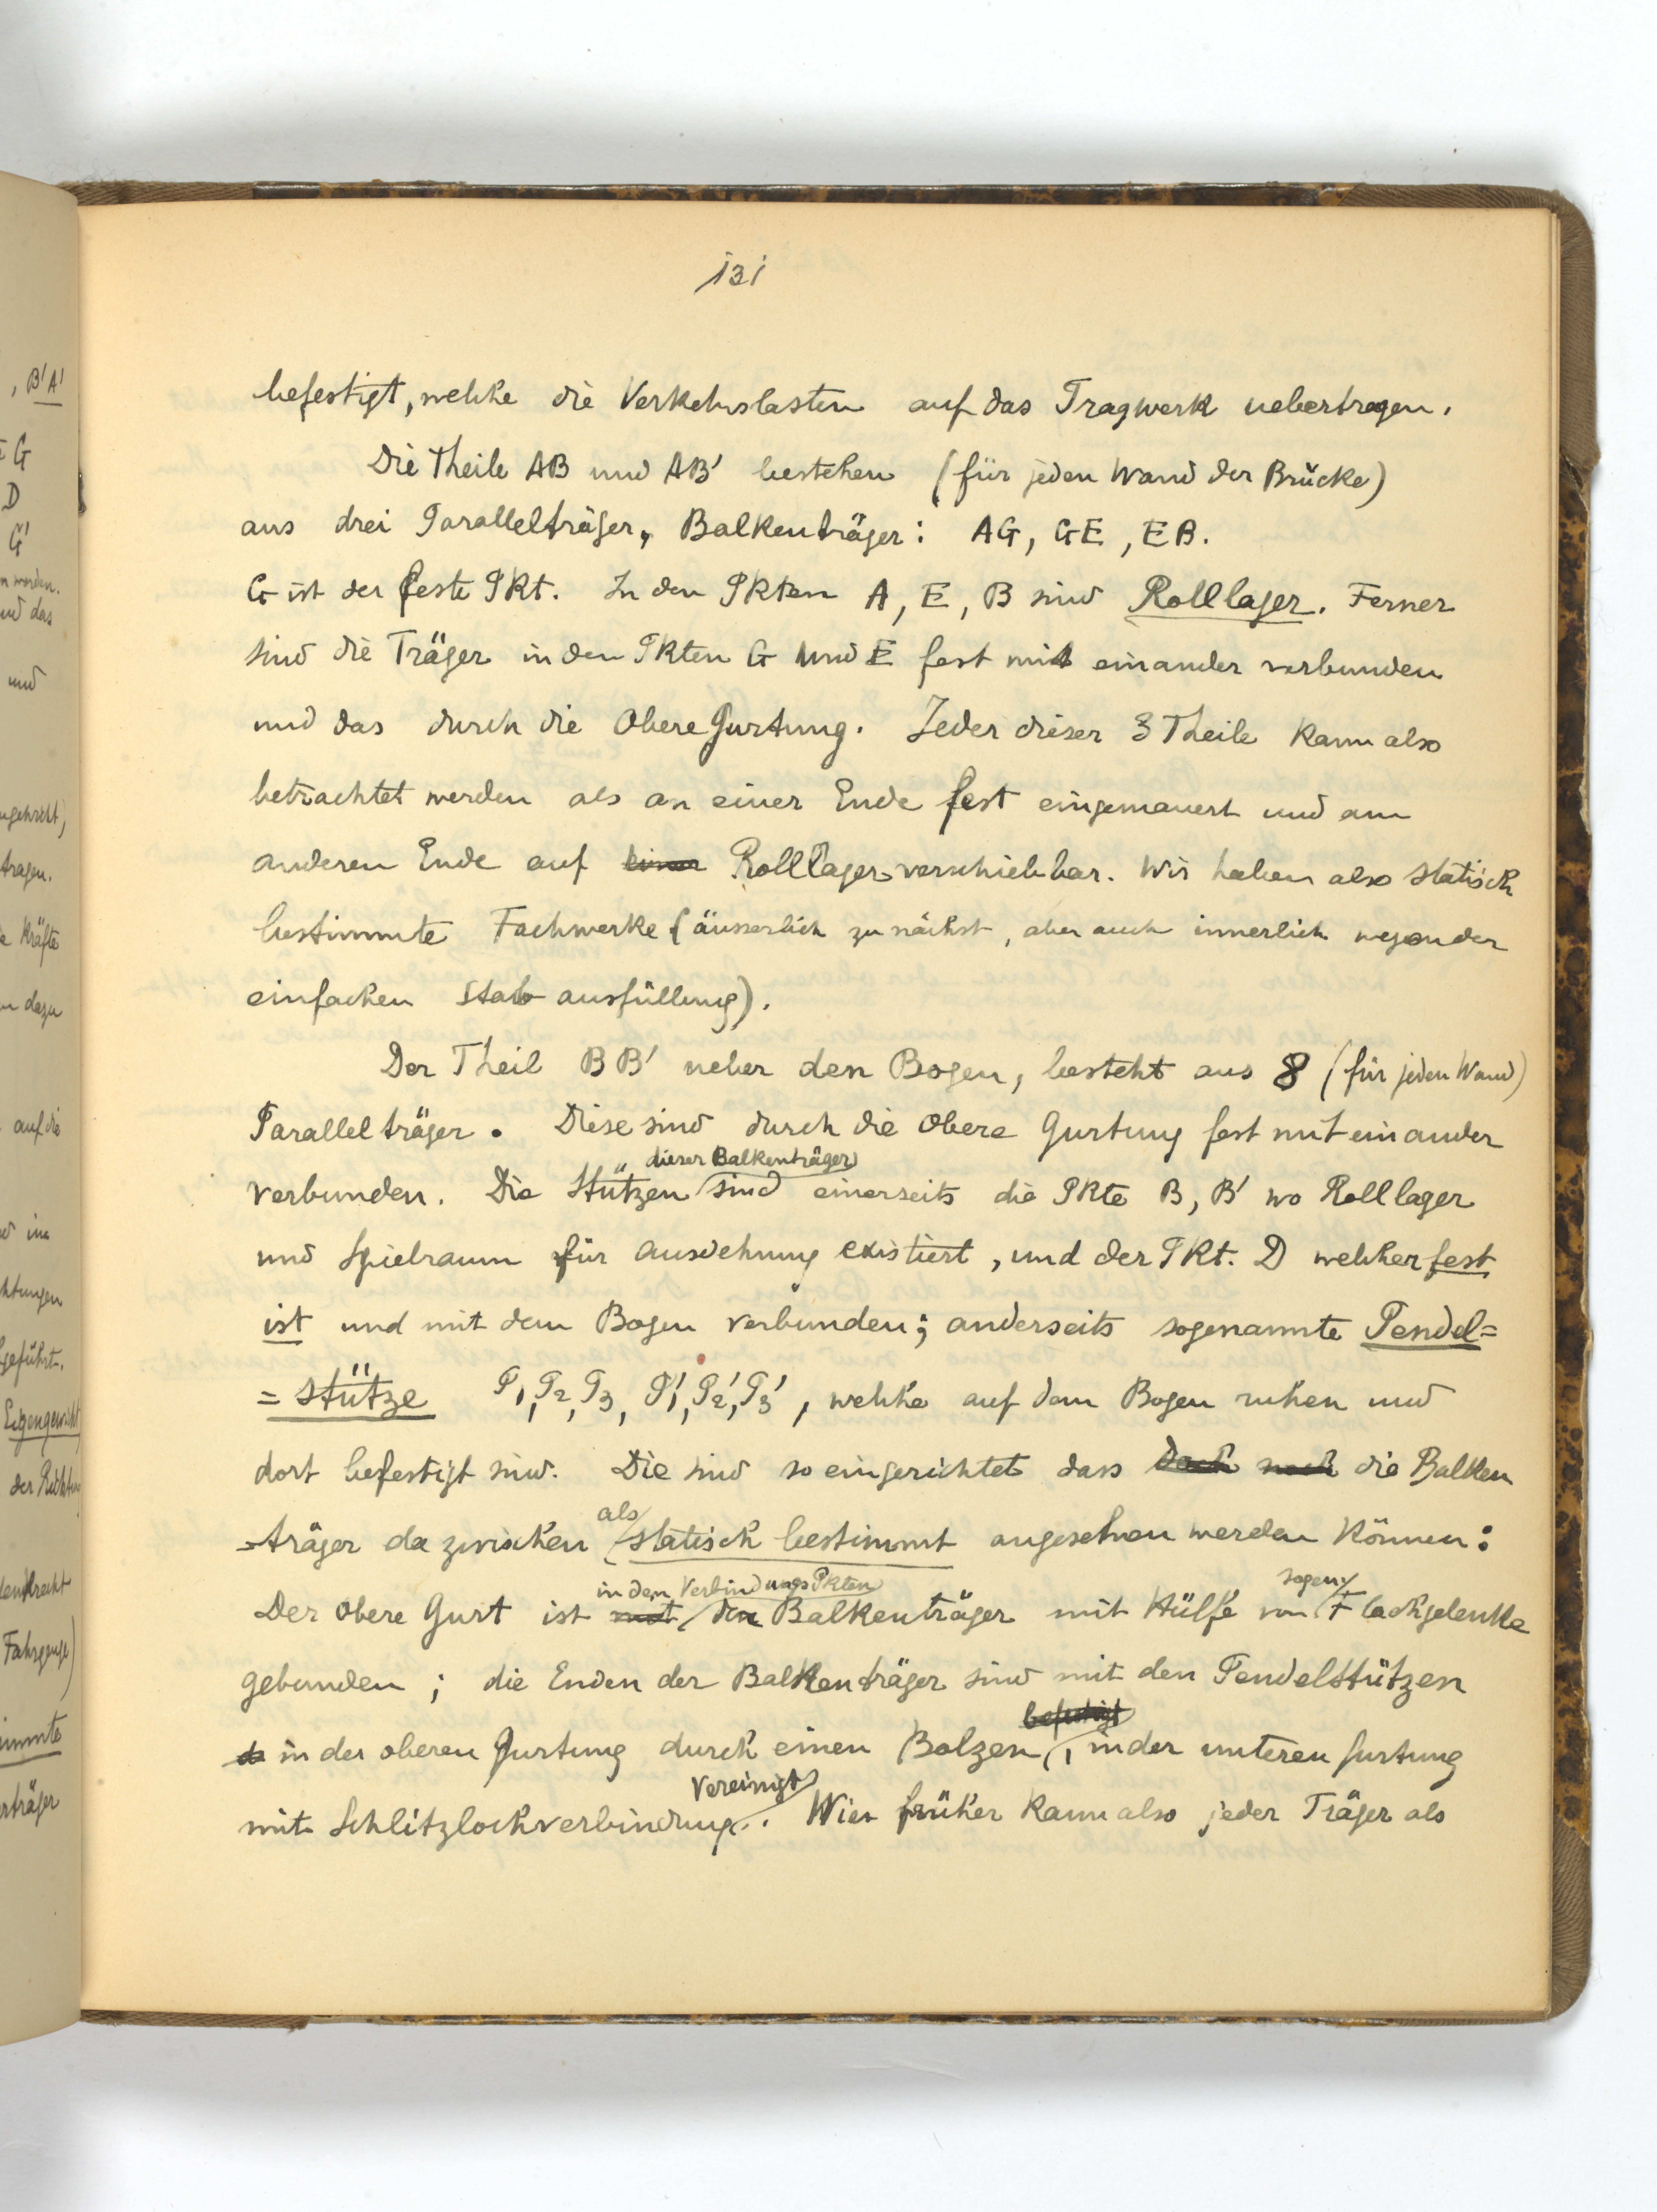 131
befestigt, welche die Verkehrslasten auf das Tragwerk uebertragen.
Die Theile AB und AB' bestehen (für jeden Wand der Brücke)
aus drei Parallelträger, Balkenträger: AG, GE, EB.
G ist der feste Pkt. In den Pkten A, E, B sind Rolllager. Ferner
sind die Träger in den Pkten G und E fest mit einander verbunden
und das durch die Obere Gurtung. Jeder dieser 3 Theile kann also
betrachtet werden als an einer Ende fest eingemauert und am
anderen Ende auf einer Rolllager verschiebbar. Wir haben also statisch
bestimmte Fachwerke (äusserlich zunächst, aber auch innerlich wegen der
einfachen Stab ausfüllung).
Der Theil BB' ueber den Bogen, besteht aus 8 (für jeden Wand)
Parallelträger. Diese sind durch die Obere Gurtung fest mit einander
dieser Balkenträger
verbunden. Die Stützen sind einerseits die Pkte B, B' wo Rolllager
und Spielraum für Ausdehnung existiert, und der Pkt. D welcher fest
ist und mit dem Bogen verbunden; anderseits sogenannte Pendel=
=stütze P1, P2, P3, P'1, P2', P3', welche auf dem Bogen ruhen und
dort befestigt sind. Die sind so eingerichtet dass die Balken
als
=träger dazwischen statisch bestimmt angesehen werden können:
in den VerbindungsPkten sogen.
Der Obere Gurt ist mit den Balkenträger mit Hülfe von Flachgelenke
gebunden; die Enden der Balkenträger sind mit den Pendelstützen
befestigt
in der oberen Gurtung durch einen Bolzen, in der unteren Gurtung
vereinigt
mit Schlitzlochverbindung. Wie früher kann also jeder Träger als
, B'A'
G
D
G'
und das
und
tragen.
Kräfte
dazu
auf die
geführt.
Eigengewicht
Fahrzeuge)